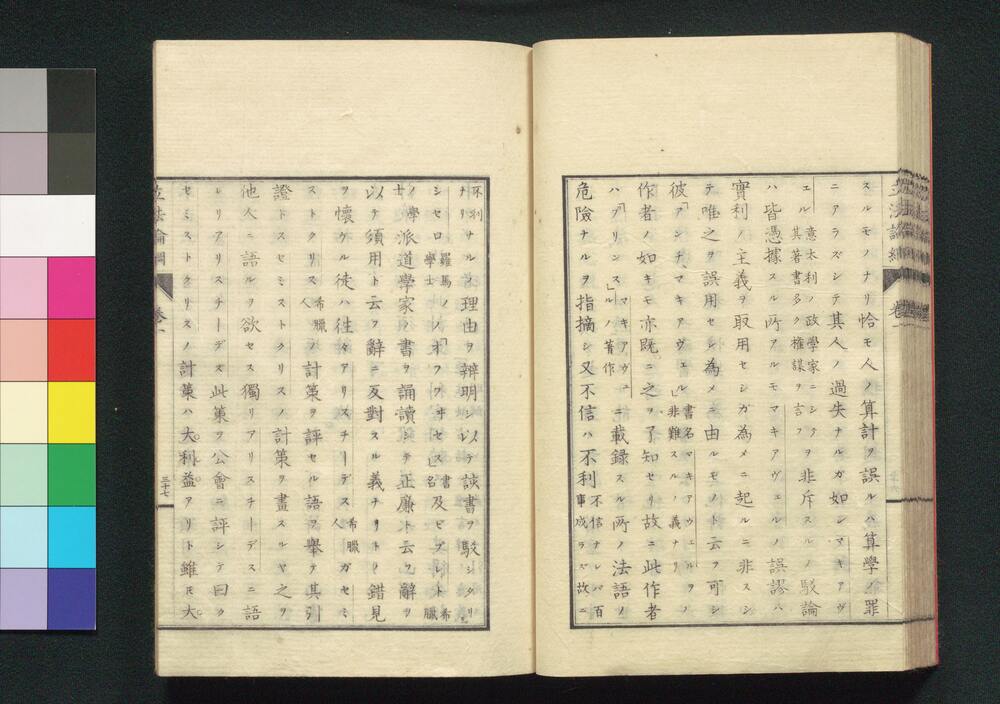 スルモノナリ恰モ人ノ算計ヲ誤ルハ算學ノ罪
ニアラズシテ其人ノ過失ナルガ如シマキアヴ
エル意太利ノ政學家ニシテ其著書多ク權謀ヲ言フヲ非斥スルノ駁論
ハ皆憑據スル所アルモマキアヴェルノ誤謬ハ
實利ノ主義ヲ取用セシガ為メニ起ルニ非スシ
テ唯之ヲ誤用セシ為メニ由ルモノト云フ可シ
彼「アンチマキアヴェル」書名マキアウェルヲ非難スルノ義ナリノ
作者ノ如キモ亦既ニ之ヲ了知セリ故ニ此作者
ハ「プリンス」マキアヴェルノ著作ニ載録スル所ノ法語ノ
危險ナルヲ指摘シ又不信ハ不利不信ナレバ百事成ラズ故ニ
不利ナリナルノ理由ヲ辨明シ以テ該書ヲ駁シタリ
シセロ羅馬ノ學士ノ「オフフヰセス」書名及ビプラト希臘
ノ學士學派道學家ノ書ヲ誦讀シテ正廉ト云フ辭ヲ
以テ須用ト云フ辭ニ反對スル義ナリトノ錯見
ヲ懷ケル徒ハ往々アリスチーデス希臘人ガセミ
ストクリス希臘人ノ計策ヲ評セル語ヲ舉ケ其引
證トスセミストクリスノ計策ヲ畫スルヤ之ヲ
他人ニ語ルヲ欲セス獨リアリスチーデスニ語
レリアリスチーデス此策ヲ公會ニ評シテ曰ク
セミストクリスノ計策ハ大利益アリト雖モ大
立法論綱
卷一
三十七